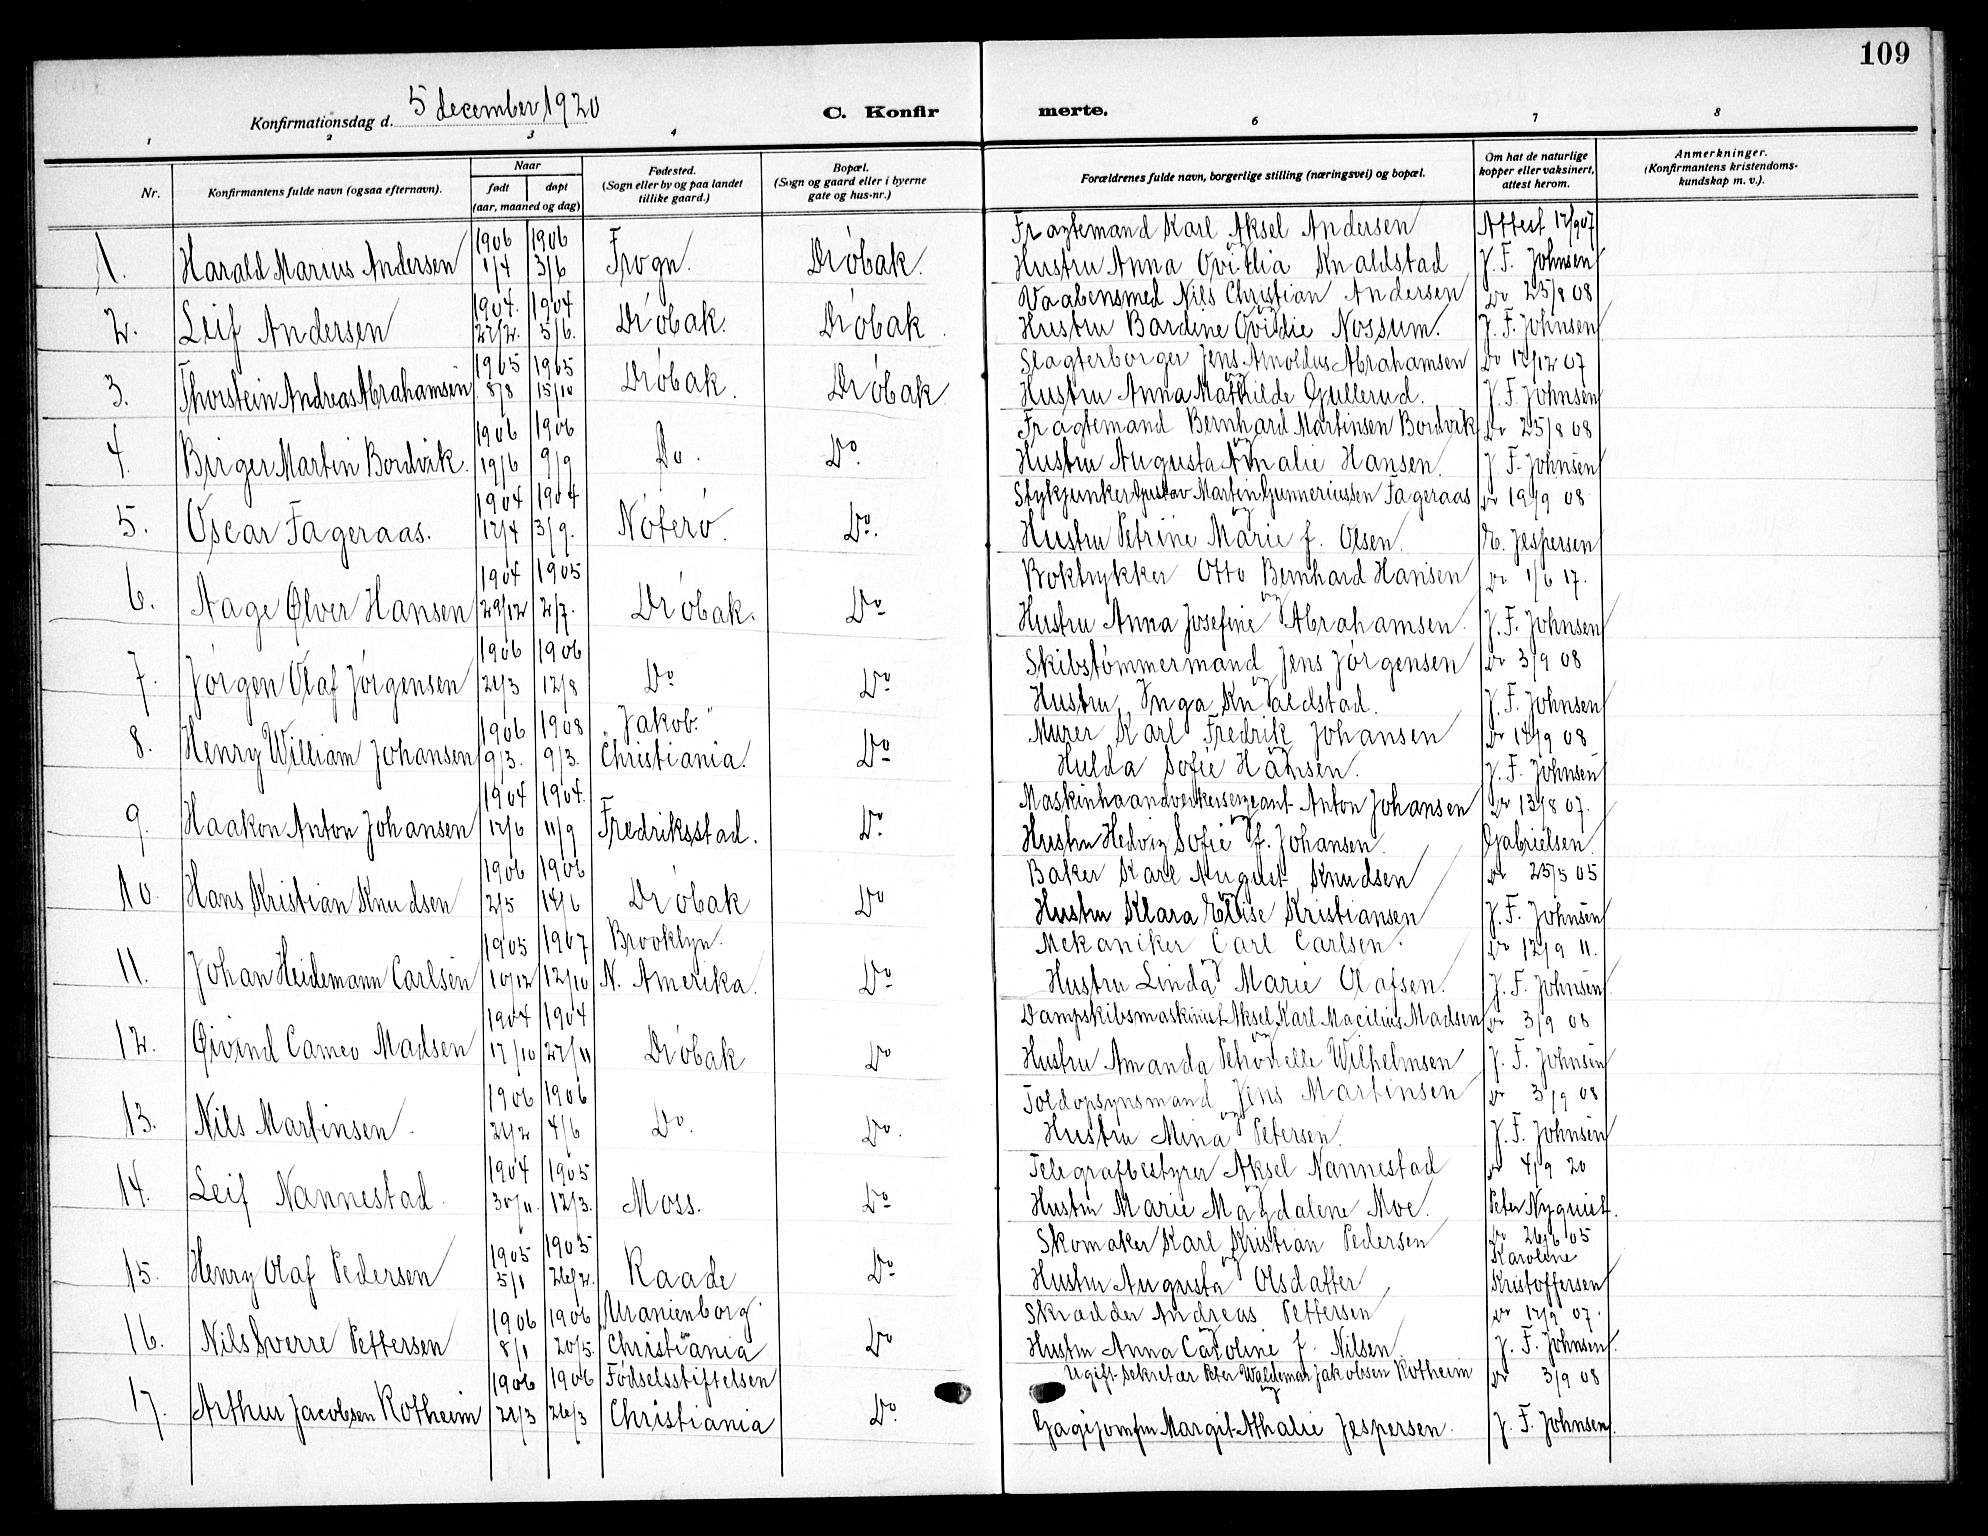 109
Konfirmationsdag d. 5 december 1920 C. Konfir merte.
1 2 3 4 6 7 8
Nr. Konfirmantens fulde navn (ogsaa efternavn). Naar født døpt (aar, maaned og dag) Fødested. (Sogn eller by og paa landet tillike gaard.) Bopæl. (Sogn og gaard eller i byerne gate og hus-nr.) Forældrenes fulde navn, borgerlige stilling (næringsvei) og bopæl. Om hat de naturlige kopper eller vaksinert, attest herom. Anmerkninger. (Konfirmantens kristendoms-kundskap m. v.).
1906 1906 Fragtemand Karl Aksel Andersen Attest 12/9 07
1. Harald Marius Andersen 1/4 3/6 Frogn. Dröbak. og Hustru Anna Ovidia Knaldstad J. F. Johnsen
1904. 1904 Vaabensmed Nils Christian Andersen Do 25/8 08
2. Leif Andersen 27/2. 5/6. Dröbak. Dröbak og Hustru Bardine Ovidie Nossum. J. F. Johnsen
1905 1905 Slagterborger Jens Arnoldus Abrahamsen Do 12/12 07
3. Thorstein Andreas Abrahamsen 8/8 15/10 Dröbak. Dröbak og Hustru Anna Mathilde Gullerud. J. F. Johnsen
1906 1906 Fragtemand Bernhard Martinsen Bordvik Do 25/8 08
4. Birger Martin Bordvik. 19/6 9/9 Do. Do. og Hustru Augusta Amalie Hansen. J. F. Johnsen
1904 1904 Stykjunker Gustav Martin Gunneriussen Fageraas Do 19/9 08
5. Oscar Fageraas. 12/4 3/9. Nöterö. Do. og Hustru Petrine Marie f. Olsen. E. Jespersen
1904 1905 Boktrykker Otto Bernhard Hansen Do 1/6 17.
6. Aage Ølver Hansen 29/12 2/7. Dröbak. Do og Hustru Anna Josefine Abrahamsen. J. F. Johnsen
1906 1906 Skibstömmermand Jens Jörgensen Do 3/9 08
7. Jörgen Olaf Jörgensen 21/3 12/8 Do Do og Hustru Inga Knaldstad. J. F. Johnsen
1906 1908 "Jakob." Murer Karl Fredrik Johansen Do 14/9 08
8. Henry William Johansen 9/3. 9/3. Christiania. Do og Hulda Sofie Hansen. J. F. Johnsen
1904 1904. Maskinhaandverkersergeant Anton Johansen Do 13/8 07.
9. Haakon Anton Johansen 12/6 11/9 Fredriksstad. Do. og Hustru Hedvig Sofie f. Johansen. Gabrielsen.
1906 1906 Baker Karl August Knudsen Do 25/5 05
10. Hans Kristian Knudsen 2/5 14/6 Dröbak Do og Hustru Klara Elise Kristiansen J. F. Johnsen
1905 1907 Brooklyn. Mekaniker Carl Carlsen. Do 12/9 11.
11. Johan Heidemann Carlsen 10/12 12/10 N. Amerika. Do og Hustru Linda Marie Olafsen. J. F. Johnsen
1904 1904 Dampskibsmaskinist Aksel Karl Macilius Madsen Do 3/9 08
12. Øivind Cameo Madsen 17/10 27/11 Dröbak Do og Hustru Amanda Petronelle Wilhelmsen J. F. Johnsen
1906 1906 Toldopsynsmand Jens Martinsen Do 3/9 08
13. Nils Martinsen 21/2 4/6 Do. Do. og Hustru Mina Petersen. J. F. Johnsen
1904 1905 Telegrafbestyrer Aksel Nannestad Do 4/9 20
14. Leif Nannestad. 30/11. 12/3. Moss. Do og Hustru Marie Magdalene Moe. Peter Nyquist.
1905 1905 Skomaker Karl Kristian Pedersen Do 26/6 05
15. Henry Olaf Pedersen 5/1 26/2. Raade Do og Hustru Augusta Olsdatter Karoline Kristoffersen
1906 1906 Uranienborg. Skrædder Andreas Pettersen Do 12/9 07.
16. Nils Sverre Pettersen 8/1 20/5. Christiania Do og Hustru Anna Caroline f. Nilsen J. F. Johnsen.
1906 1906 Fødselsstiftelsen Ugift Sekretær Peter Waldemar Jakobsen Rotheim Do 3/9 08
17. Arthur Jacobsen Rotheim 21/3 26/3 Christiania Do. og Margit Athalie Jespersen. J. F. Johnsen.